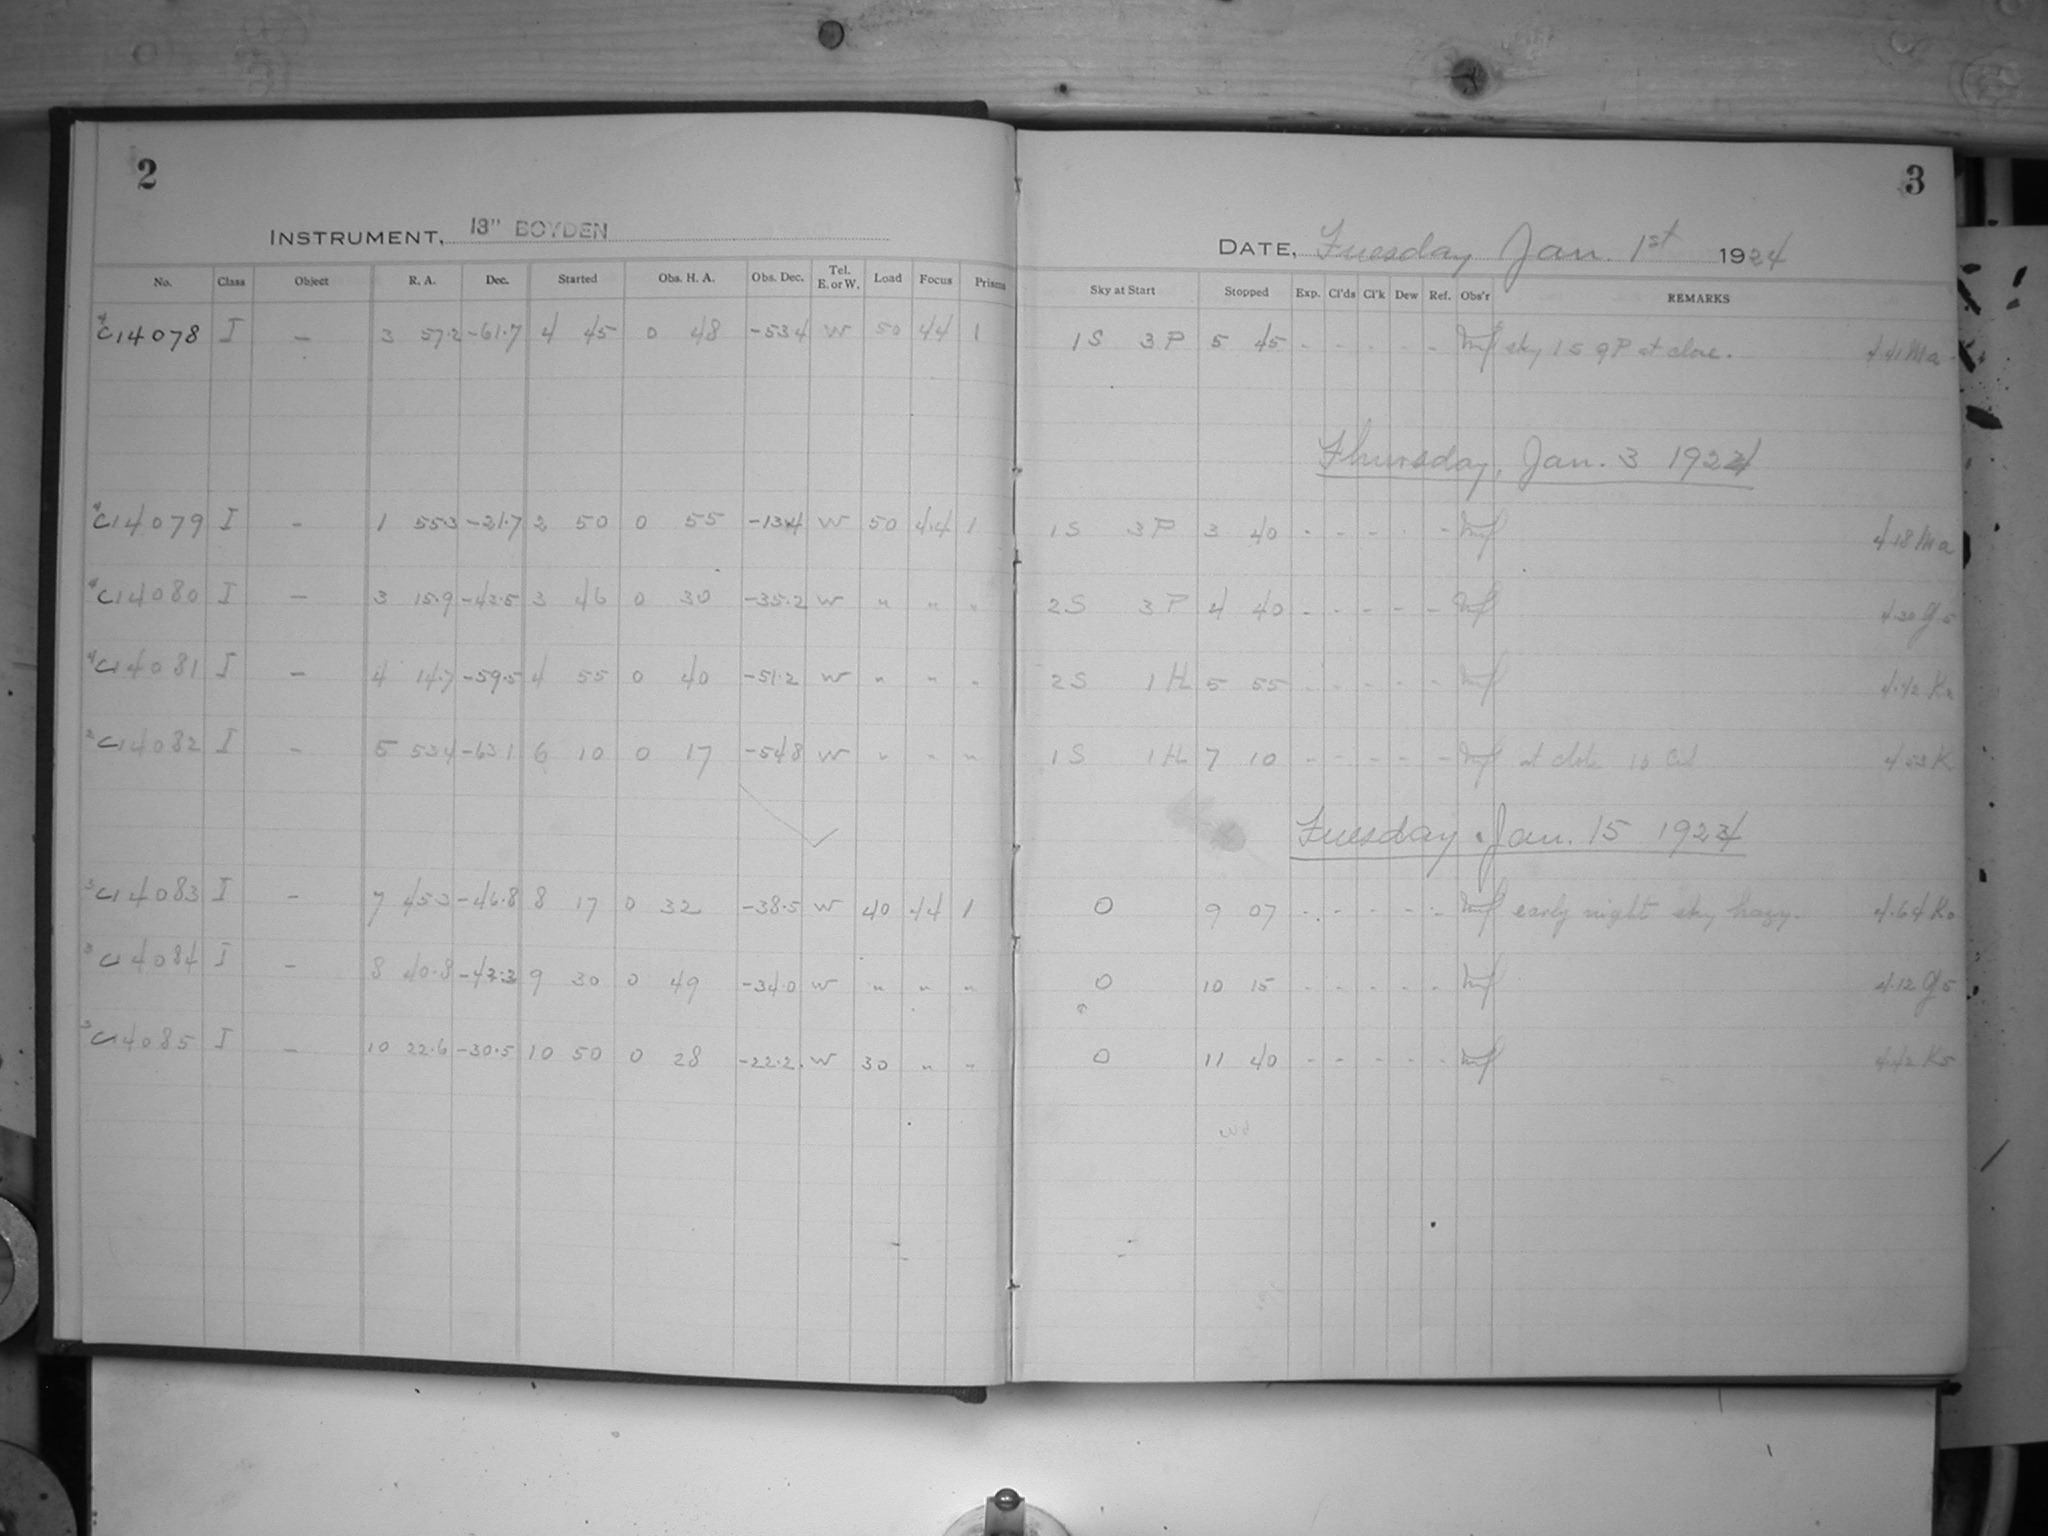 2
INSTRUMENT, 13" BOYDEN
No. Class Object R. A. Dec. Started Obs. H. A. Obs. Dec. Tel. E. or W. Load Focus Prisms
4 C14078 I — 3 57.2 -61.7 4 45 0 48 -53.4 W 50 44 1
4 C14079 I - 1 55.3 -21.7 2 50 0 55 -13.4 W 50 4.4 1
4 C14080 I — 3 15.9 -43.5 3 46 0 30 -35.2 W " " "
4 C14081 I — 4 14.7 -59.5 4 55 0 40 -51.2 W " " "
2 C14082 I - 5 53.4 -63.1 6 10 0 17 -54.8 W " " "
3 C14083 I - 7 45.3 -46.8 8 17 0 32 -38.5 W 40 44 1
3 C14084 I - 8 40.8 -42.3 9 30 0 49 -34.0 W " " "
3 C14085 I - 10 22.6 -30.5 10 50 0 28 -22.2 W 30 " "
3
DATE, Tuesday Jan. 1st 1924
Sky at Start Stopped Exp. Cl'ds Cl'k Dew Ref. Obs'r REMARKS
1S 3P 5 45 - - - - - sky 1S 9P at close. 4.41 Ma
Thursday, Jan. 3 1924
1S 3P 3 40 - - - - - 4.18 Ma
2S 3P 4 40 - - - - - 4.30 G5
2S 1H 5 55 - - - - - 4.42
1S 1H 7 10 - - - - - at close 4.53 K
Tuesday Jan. 15 1924
0 9 07 - - - - - early night sky hazy. 4.64 Ko
0 10 15 - - - - - 4.12 G5
0 11 40 - - - - - 4.42 K5